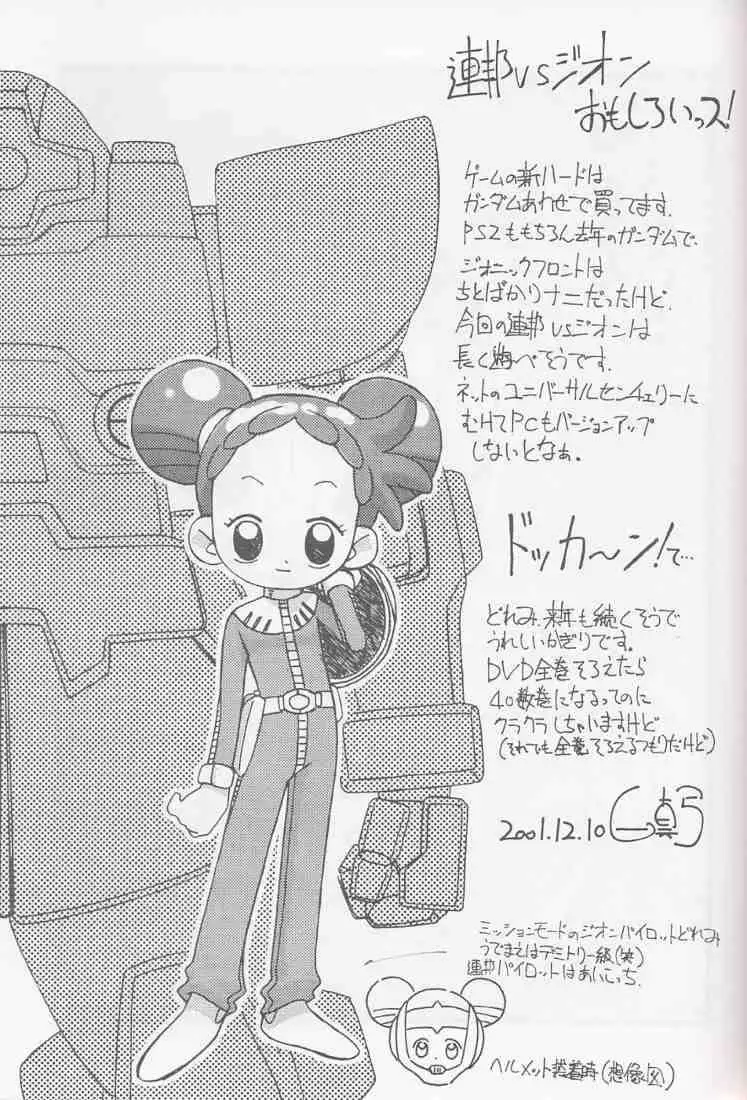 連邦VSジオン
おもしろいっス!
ゲームの新ハードは
ガンダムあわせで買ってます.
PS2ももちろん去年のガンダムで、
ジオニックフロントは
ちとばかりナニだったけど、
今回の連邦VSジオンは
長く遊べそうです.
ネットのユニバーサルセンチュリーに
むけてPCもバージョンアップ
しないとなぁ。
ドッカ〜ン!て…
どれみ、来年も続くそうで
うれしいかぎりです。
DVD全巻そろえたら
40数巻になるってのに
クラクラしちゃいますけど
(それでも全巻そろえるつもりだけど)
2001.12.10
ミッションモードのジオンパイロットどれみ
うでまえはデミトリー級(笑)
連邦パイロットはあいこっち.
ヘルメット装着時(想像図)